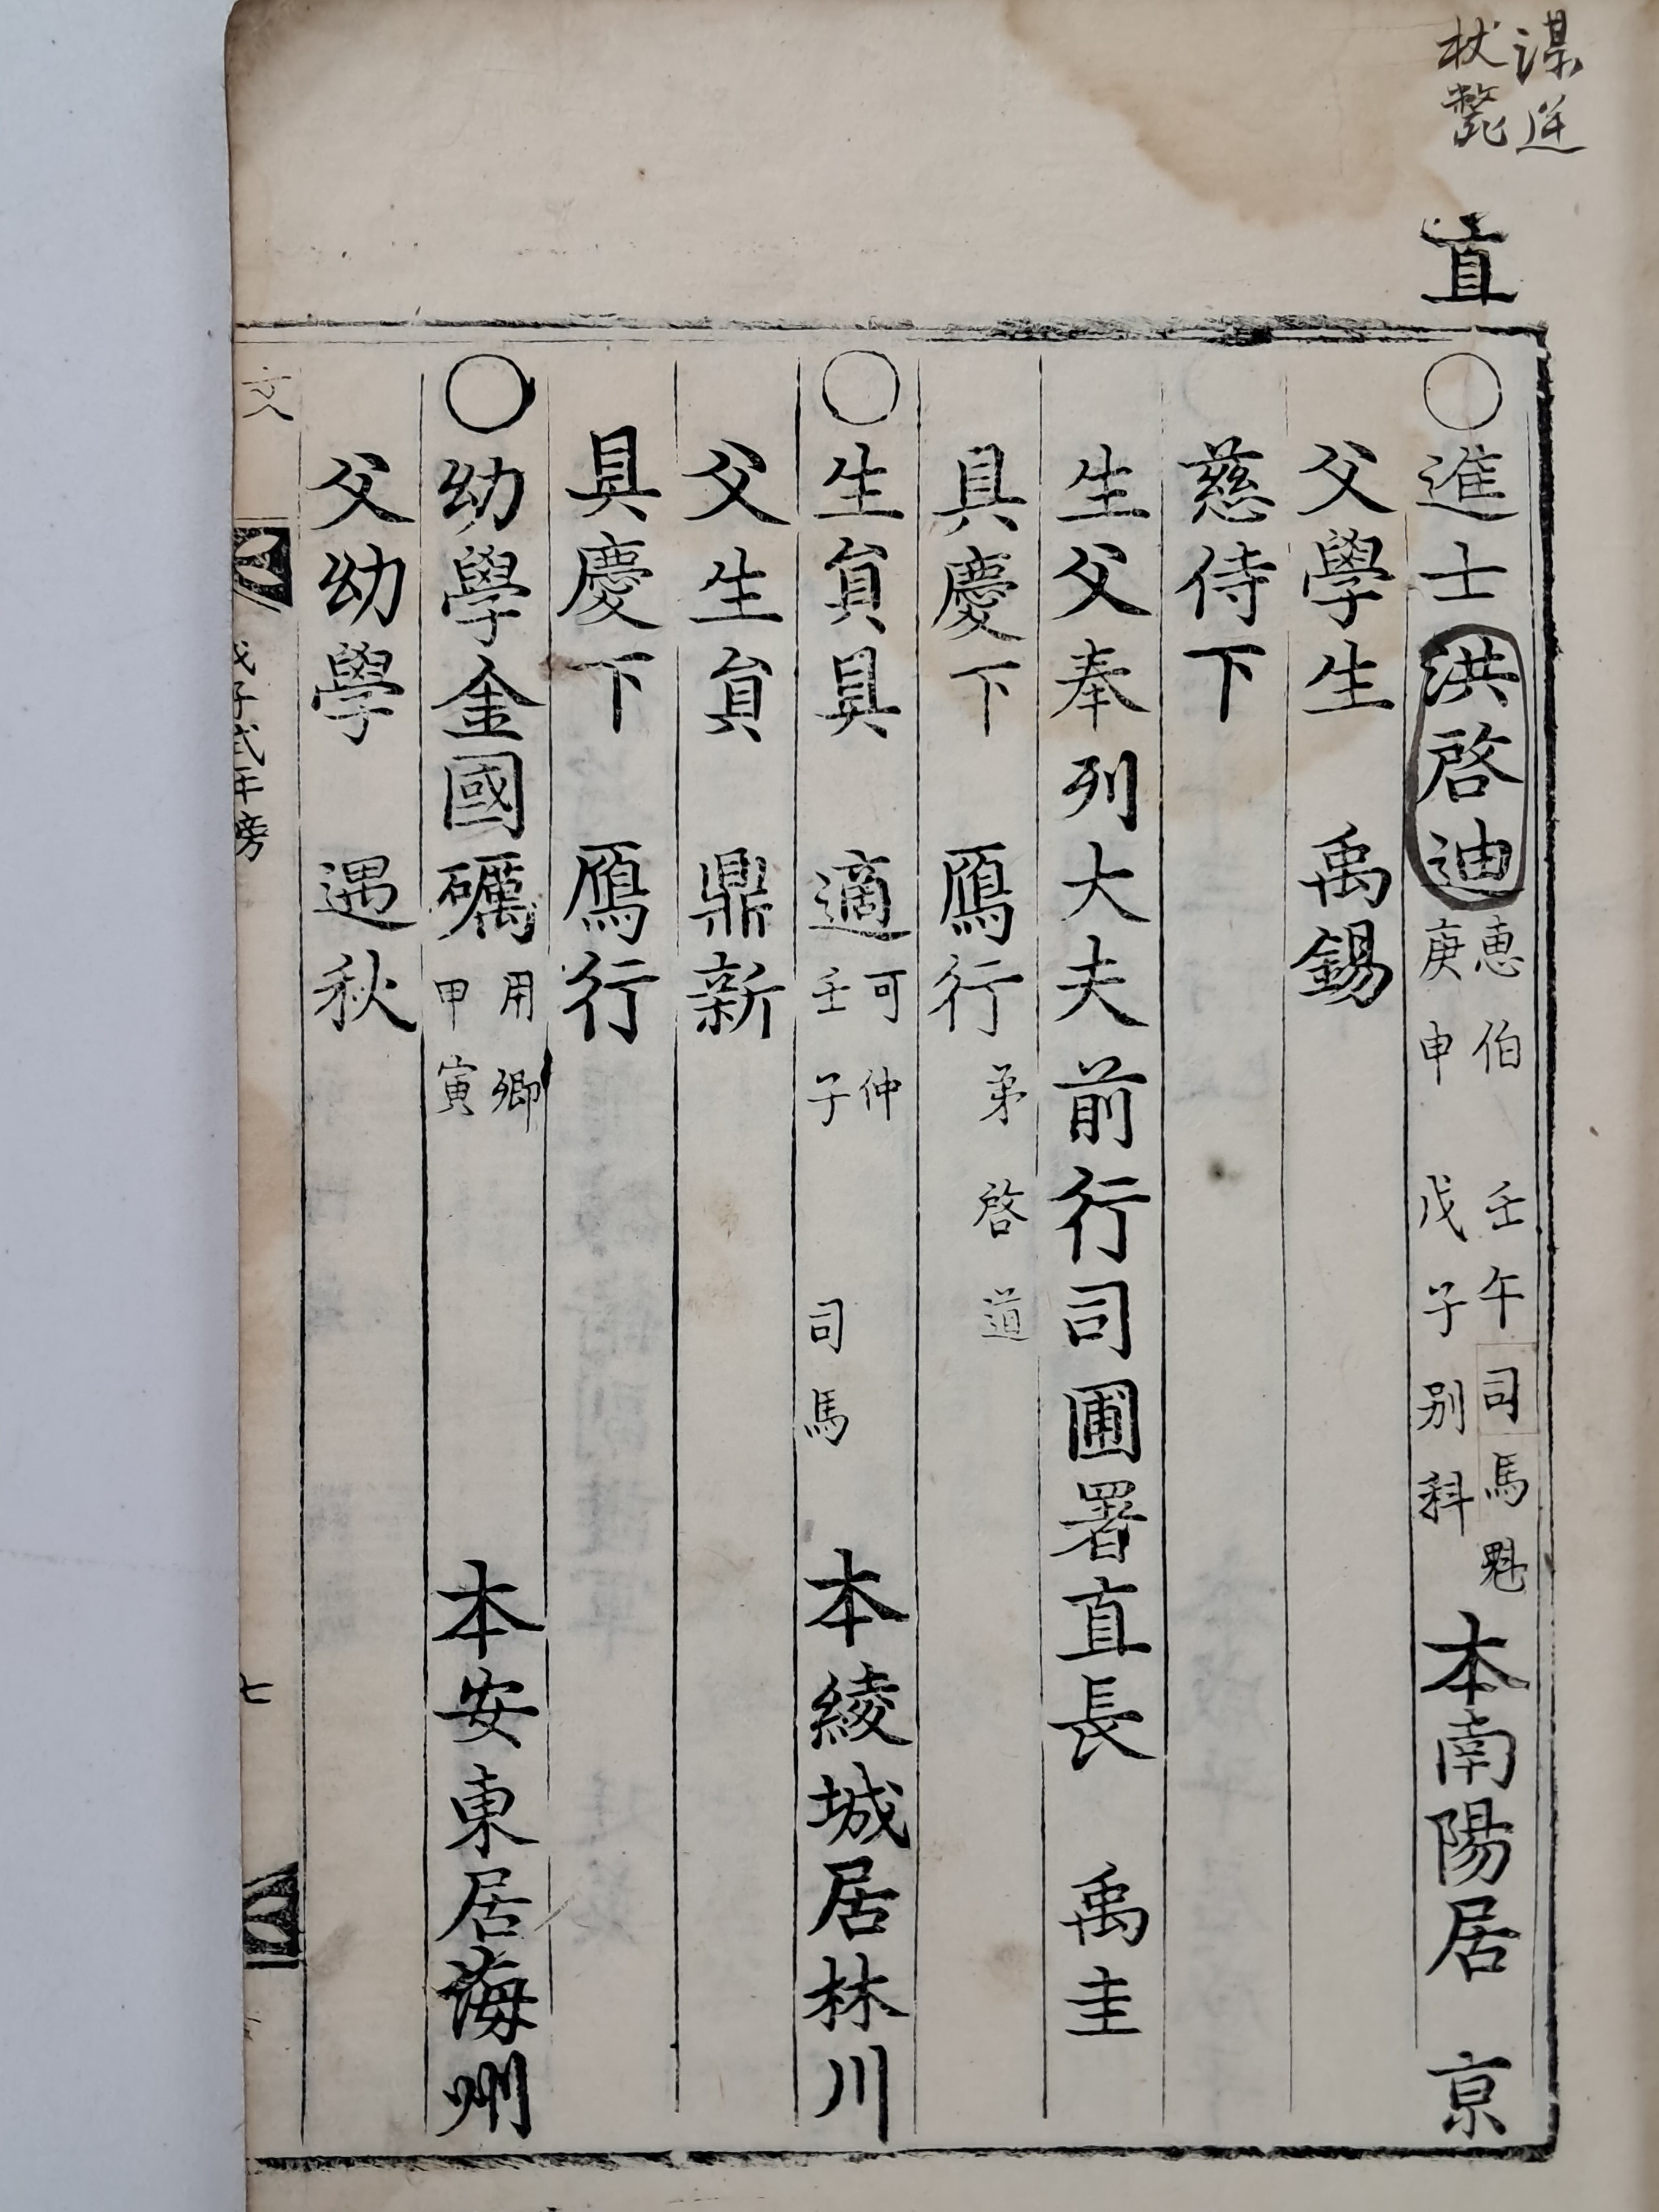 謀逆
杖斃
直
〇進士洪啓迪
惠伯 壬午司馬魁
庚申 戊子別科
本南陽居 京
父學生 禹錫
慈侍下
生父奉列大夫前行司圃署直長 禹圭
具慶下 鴈行
弟啓道
〇生負具 適
可仲
壬子 司馬
本綾城居林川
父生負 鼎新
具慶下 鴈行
〇幼學金國礪
用卿
甲寅
本安東居海州
父幼學 遇秋
文
戊子式年榜
七